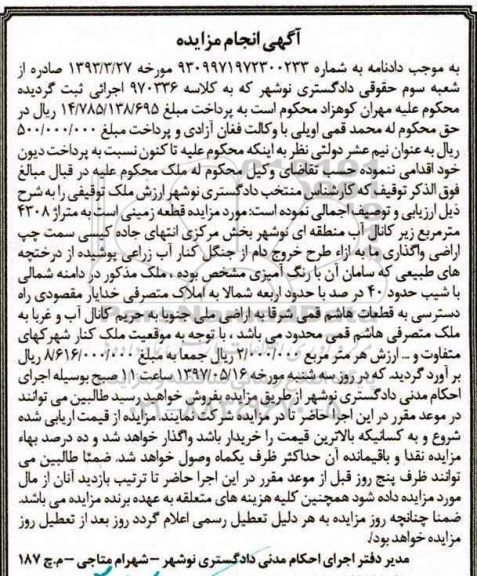 آگهی انجام مزایده
به موجب دادنامه به شماره ۹۳۰۹۹۷۱۹۷۲۳۰۰۲۳۳ مورخه ۱۳۹۳/۳/۲۷ صادره از
شعبه سوم حقوقی دادگستری نوشهر که به کلاسه ۹۷۰۳۳۶ اجرائی ثبت گردیده
محکوم علیه مهران کوهزاد محکوم است به پرداخت مبلغ ۱۴/۷۸۵/۱۳۸/۶۹۵ ریال در
حق محکوم له محمد قمی اویلی با وکالت فغان آزادی و پرداخت مبلغ ۵۰۰/۰۰۰/۰۰۰
ریال به عنوان نیم عشر دولتی نظر به اینکه محکوم علیه تا کنون نسبت به پرداخت دیون
خود اقدامی ننموده حسب تقاضای وکیل محکوم له ملک محکوم علیه در قبال مبالغ
فوق الذکر توقیف که کارشناس منتخب دادگستری نوشهر ارزش ملک توقیفی را به شرح
ذیل ارزیابی و توصیف اجمالی نموده است: مورد مزایده قطعه زمینی است به متراژ ۴۳۰۸
مترمربع زیر کانال آب منطقه ای نوشهر بخش مرکزی انتهای جاده کیسی سمت چپ
اراضی واگذاری ما به ازاء طرح خروج دام از جنگل کنار آب زراعی پوشیده از درختچه
های طبیعی که سامان آن با رنگ آمیزی مشخص بوده ، ملک مذکور در دامنه شمالی
با شیب حدود ۴۰ در صد با حدود اربعه شمالا به املاک متصرفی خدایار مقصودی راه
دسترسی به قطعات هاشم قمی شرقا به اراضی ملی جنوبا به حریم کانال آب و غربا به
ملک متصرفی هاشم قمی محدود می باشد . با توجه به موقعیت ملک کنار شهرکهای
متفاوت و ... ارزش هر متر مربع ۲/۰۰۰/۰۰۰ ریال جمعا به مبلغ ۸/۶۱۶/۰۰۰/۰۰۰ ریال
بر آورد گردید. که در روز سه شنبه مورخه ۱۳۹۷/۰۵/۱۶ ساعت ۱۱ صبح بوسیله اجرای
احکام مدنی دادگستری نوشهر از طریق مزایده بفروش خواهید رسید طالبین می توانند
در موعد مقرر در این اجرا حاضر تا در مزایده شرکت نمایند. مزایده از قیمت ارزیابی شده
شروع و به کسانیکه بالاترین قیمت را خریدار باشد واگذار خواهد شد و ده درصد بهاء
مزایده نقدا و باقیمانده آن حداکثر ظرف یکماه وصول خواهد شد. ضمنا طالبین می
توانند ظرف پنج روز قبل از موعد مقرر در این اجرا حاضر تا ترتیب بازدید آنان از مال
مورد مزایده داده شود همچنین کلیه هزینه های متعلقه به عهده برنده مزایده می باشد.
ضمنا چنانچه روز مزایده به هر دلیل تعطیل رسمی اعلام گردد روز بعد از تعطیل روز
مزایده خواهد بود/.
مدیر دفتر اجرای احکام مدنی دادگستری نوشهر –شهرام متاجی –م.چ ۱۸۷